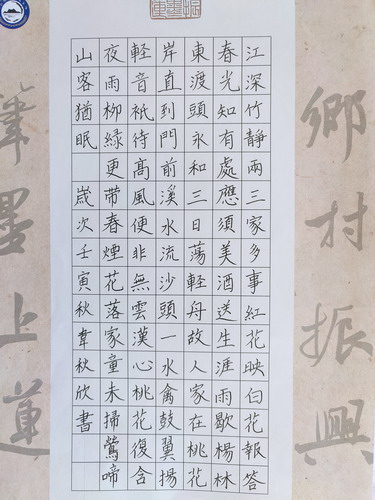 鄉村振興
江深竹靜兩三家多事紅花映白花報答
春光知有處應須美酒送生涯雨歇楊林
東渡頭永和三日蕩輕舟故人家在桃花
岸直到門前溪水流沙頭一水禽鼓翼揚
輕音祇待高風便非無雲漢心桃花復含
夜雨柳綠更帶春煙花落家童未掃鶯啼
山客猶眠 歲次壬寅秋韋秋欣書
筆墨上蓮